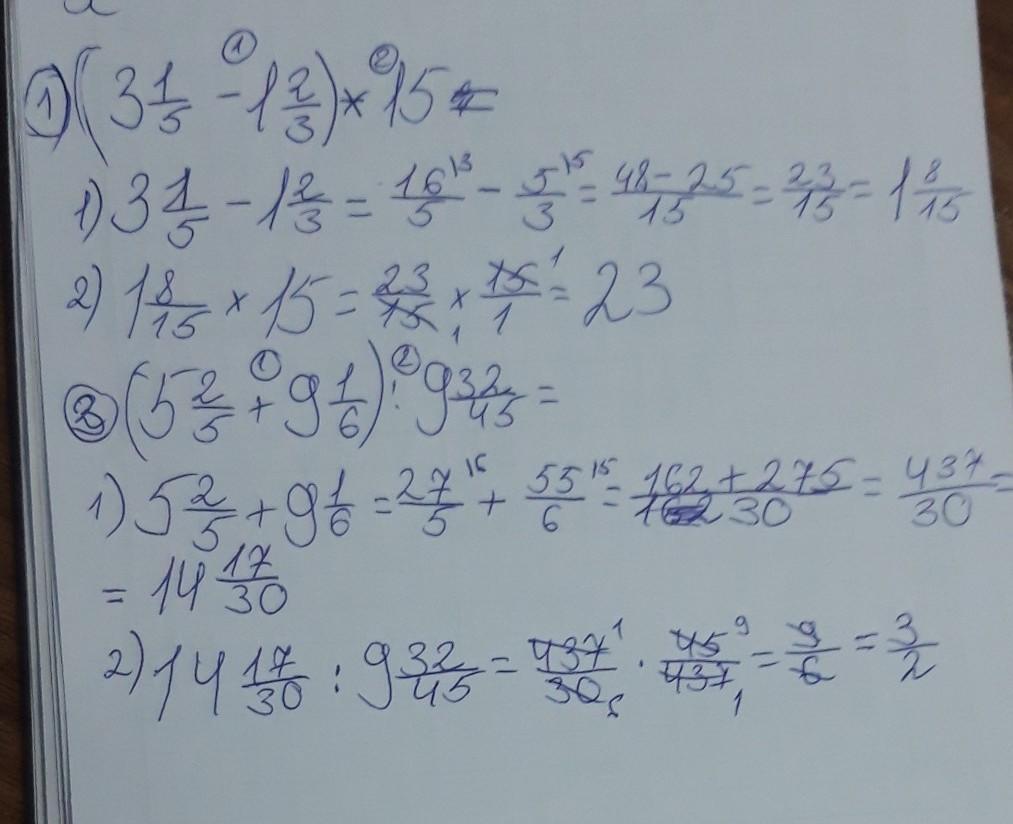 1) (3 1/5 - 1 2/3) × 15 =
1) 3 1/5 - 1 2/3 = 16/5 - 5/3 = (48-25)/15 = 23/15 = 1 8/15
2) 1 8/15 × 15 = 23/15 × 15/1 = 23
3) (5 2/5 + 9 1/6) : 9 32/45 =
1) 5 2/5 + 9 1/6 = 27/5 + 55/6 = (162+275)/30 = 437/30 =
= 14 17/30
2) 14 17/30 : 9 32/45 = 437/30 · 45/437 = 9/6 = 3/2